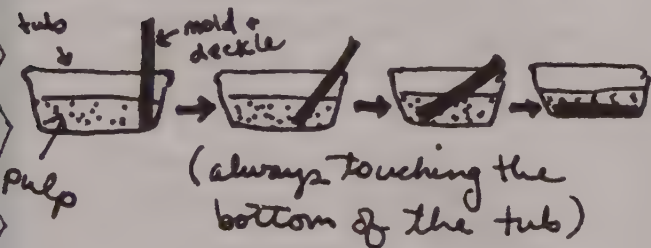 tub
mold +
deckle
pulp
(always touching the
bottom of the tub)